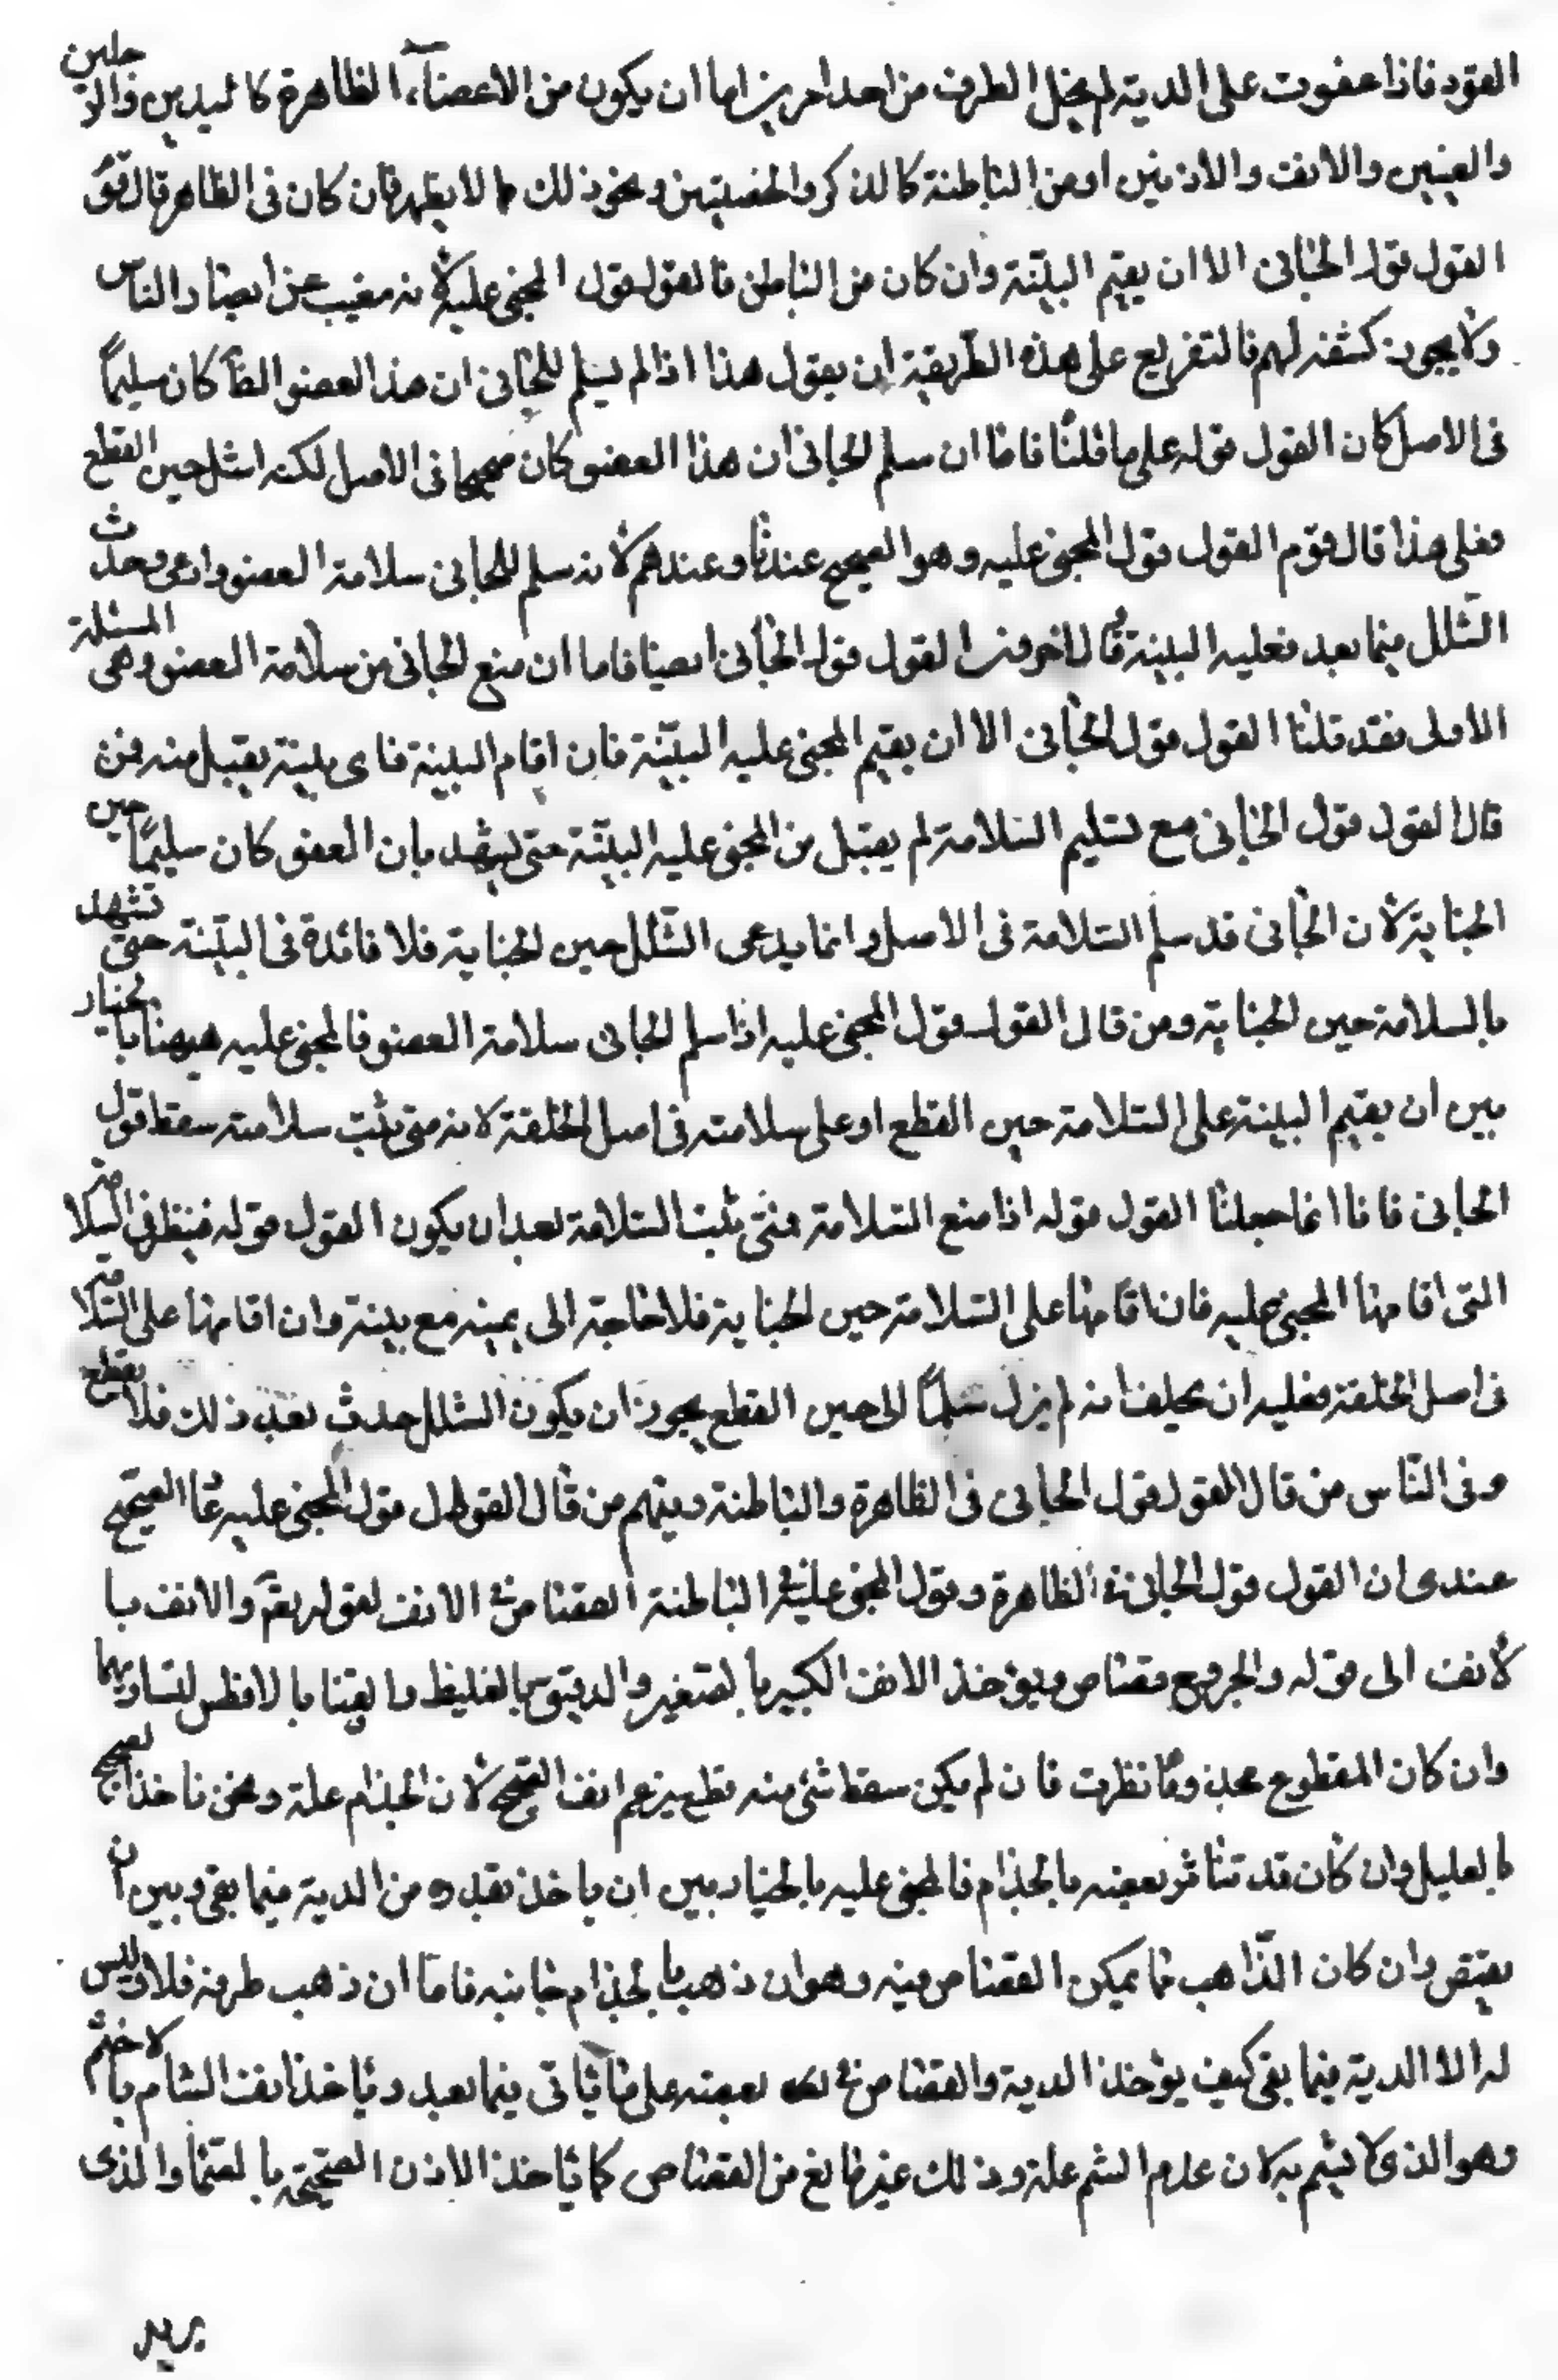 القود فاذا عفوت على الدية لم يخل الطرف من احد امرين اما ان يكون من الاعضاء الظاهرة كاليدين والرجلين
والعينين والانف والاذنين او من الباطنة كالذكر والخصيتين ونحو ذلك مما لا يظهر فان كان فى الظاهر قال قوم
القول قول الجانى الا ان يقيم البينة وان كان من الباطن فالقول قول المجنى عليه لانه مغيب عن ابصار الناس
ولا يجوز كشفه لهم فالتفريع على هذه الطريقة ان يقول هذا اذا لم يسلم الجانى ان هذا العضو كان سليماً
فى الاصل كان القول قوله على ما قلنا فاما ان سلم الجانى ان هذا العضو كان صحيحا فى الاصل لكنه اشل حين القطع
فعلى هذا قال قوم القول قول المجنى عليه وهو الصحيح عندنا وعندهم لانه سلم الجانى سلامة العضو وادعى حدث
الشلل فيما بعد فعليه البينة قال اخرون القول قول الجانى ايضا فاما ان منع الجانى من سلامة العضو وهى المسئلة
الاولى فقد قلنا القول قول الجانى الا ان يقيم المجنى عليه البينة فان اقام البينة فاى بينة يقبل منه فمن
قال القول قول الجانى مع تسليم السلامة لم يقبل من المجنى عليه البينة حتى يشهد بان العضو كان سليمًا حين
الجناية لان الجانى قد سلم السلامة فى الاصل وانما يدعى الشلل حين الجناية فلا فائدة فى البينة حتى تشهد
بالسلامة حين الجناية ومن قال القول قول المجنى عليه اذا سلم الجانى سلامة العضو فالمجنى عليه هيهنا بالخيار
بين ان يقيم البينة على السلامة حين القطع او على سلامته فى اصل الخلقة لانه متى ثبت سلامته سقط قول
الجانى فانا انما جعلنا القول قوله اذا منع السلامة فمتى ثبت السلامة بعد ان يكون القول قوله فينظر فى السلامة
التى اقامها المجنى عليه فان اقامها على السلامة حين الجناية فلا حاجة الى يمينه مع بينة وان اقامها على السلامة
فى اصل الخلقة فعليه ان يحلف انه لم يزل سليمًا الى حين القطع يجوز ان يكون الشلل حدث بعد ذلك فلا يقطع
وفى الناس من قال القول قول الجانى فى الظاهرة والباطنة ومنهم من قال القول قول المجنى عليه الصحيح
عندى ان القول قول الجانى فى الظاهرة وقول المجنى عليه فى الباطنة القصاص فى الانف لقوله تعم والانف با
لانف الى قوله والجروح قصاص ويؤخذ الانف الكبير بالصغير والدقيق بالغليظ والقنا بالافطس لتساويهما
وان كان المقطوع مجذوما نظرت فان لم يكن سقط شئ منه قطع به انف الصحيح لان الجذام علة ونحن ناخذ الصحيح
بالعليل وان كان قد تناثر بعضه بالجذام فالمجنى عليه بالخيار بين ان ياخذ بقدره من الدية فيما بقى وبين ان
يقتص ان كان الذاهب مما يمكن القصاص فيه وهو ان ذهب بالجذام جانبه فاما ان ذهب طرفه فلا وليس
له الا الدية فيما بقى كيف يؤخذ الدية والقصاص فى بعضه على ما ياتى فيما بعد وياخذ انف الشام بالاخثم
وهو الذى لا يشم به لان عدم الشم علة وذلك غير مانع من القصاص كما ياخذ الاذن الصحيحة بالصماء والذى
يريد